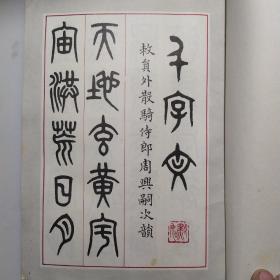 千字文
敕員外散騎侍郎周興嗣次韻
天地玄黃宇
宙洪荒日月